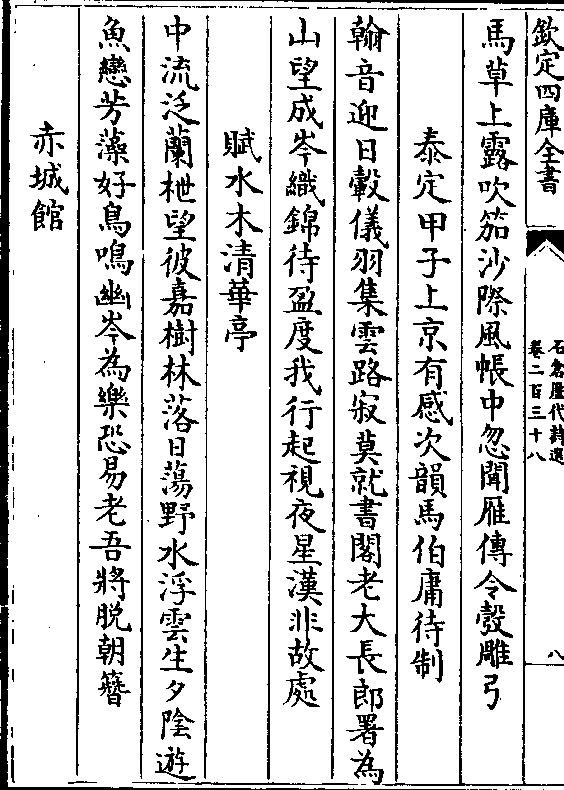 欽定四庫全書
石倉歷代詩選
卷二百三十八
八
馬草上露吹笳沙際風帳中忽聞雁傳令彀雕弓
泰定甲子上京有感次韻馬伯庸待制
翰音迎日轂儀羽集雲路寂莫就書閣老大長郎署為
山望成岑織錦待盈度我行起視夜星漢非故處
賦水木清華亭
中流泛蘭枻望彼嘉樹林落日蕩野水浮雲生夕陰遊
魚戀芳藻好鳥鳴幽岑為樂恐易老吾將脫朝簪
赤城館